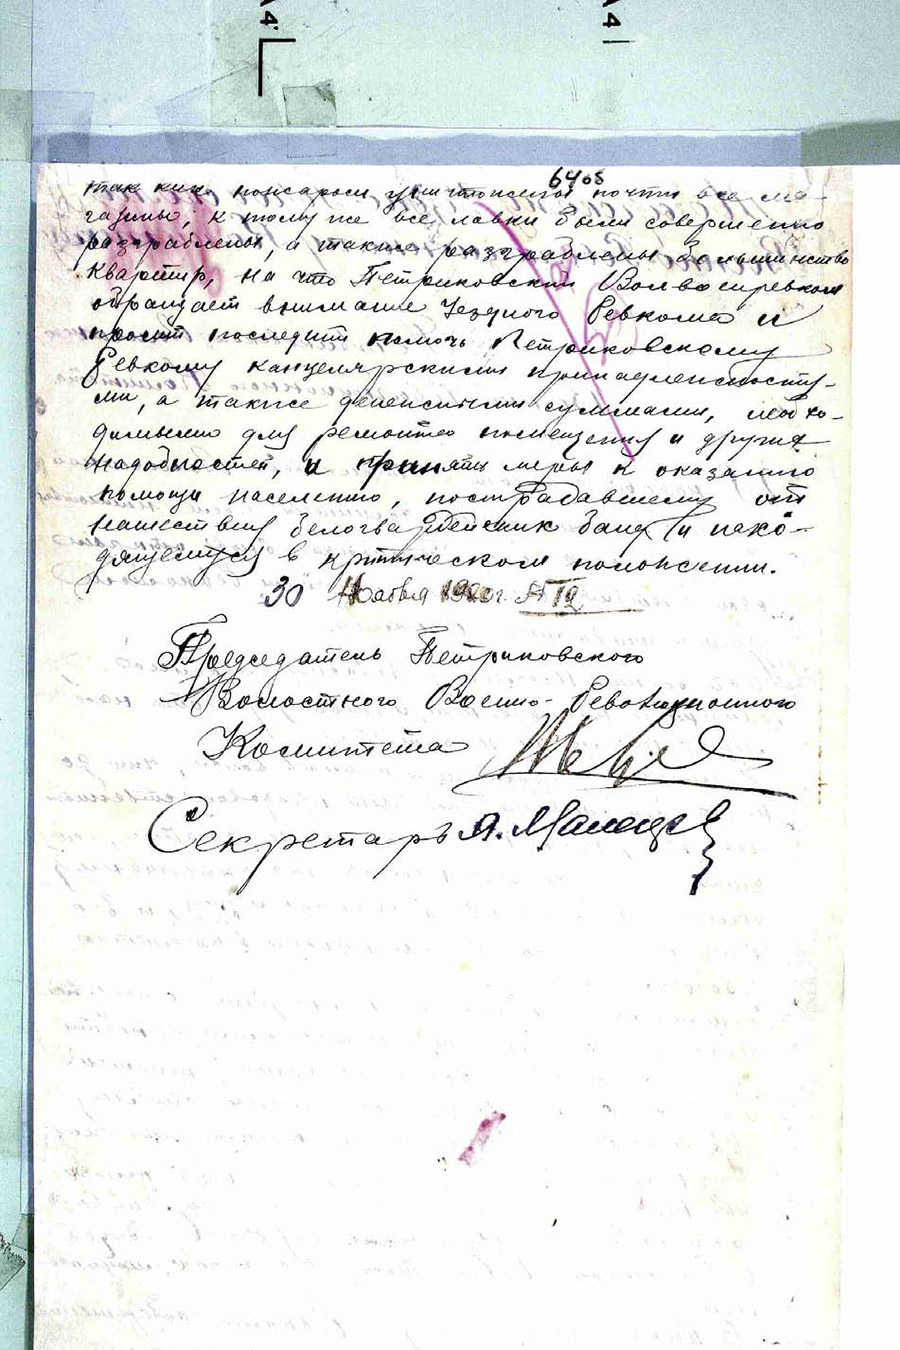 A4
A4
6405
так как пожаром уничтожены почти все ма-
газины, к тому же все лавки были совершенно
разграблены, а также разграблены большинство
квартир, на что Петриковский Волвоенревком
обращает внимание Уездного Ревкома и
просит последний помочь Петриковскому
Ревкому канцелярскими принадлежностя-
ми, а также денежными суммами, необхо-
димыми для ремонта помещения и других
надобностей, и принять меры к оказанию
помощи населению, пострадавшему от
нашествия белогвардейских банд и нахо-
дящемуся в критическом положении.
30 Ноября 1920 г.
Председатель Петриковского
Волостного Военно-Революционного
Комитета
Секретарь А.